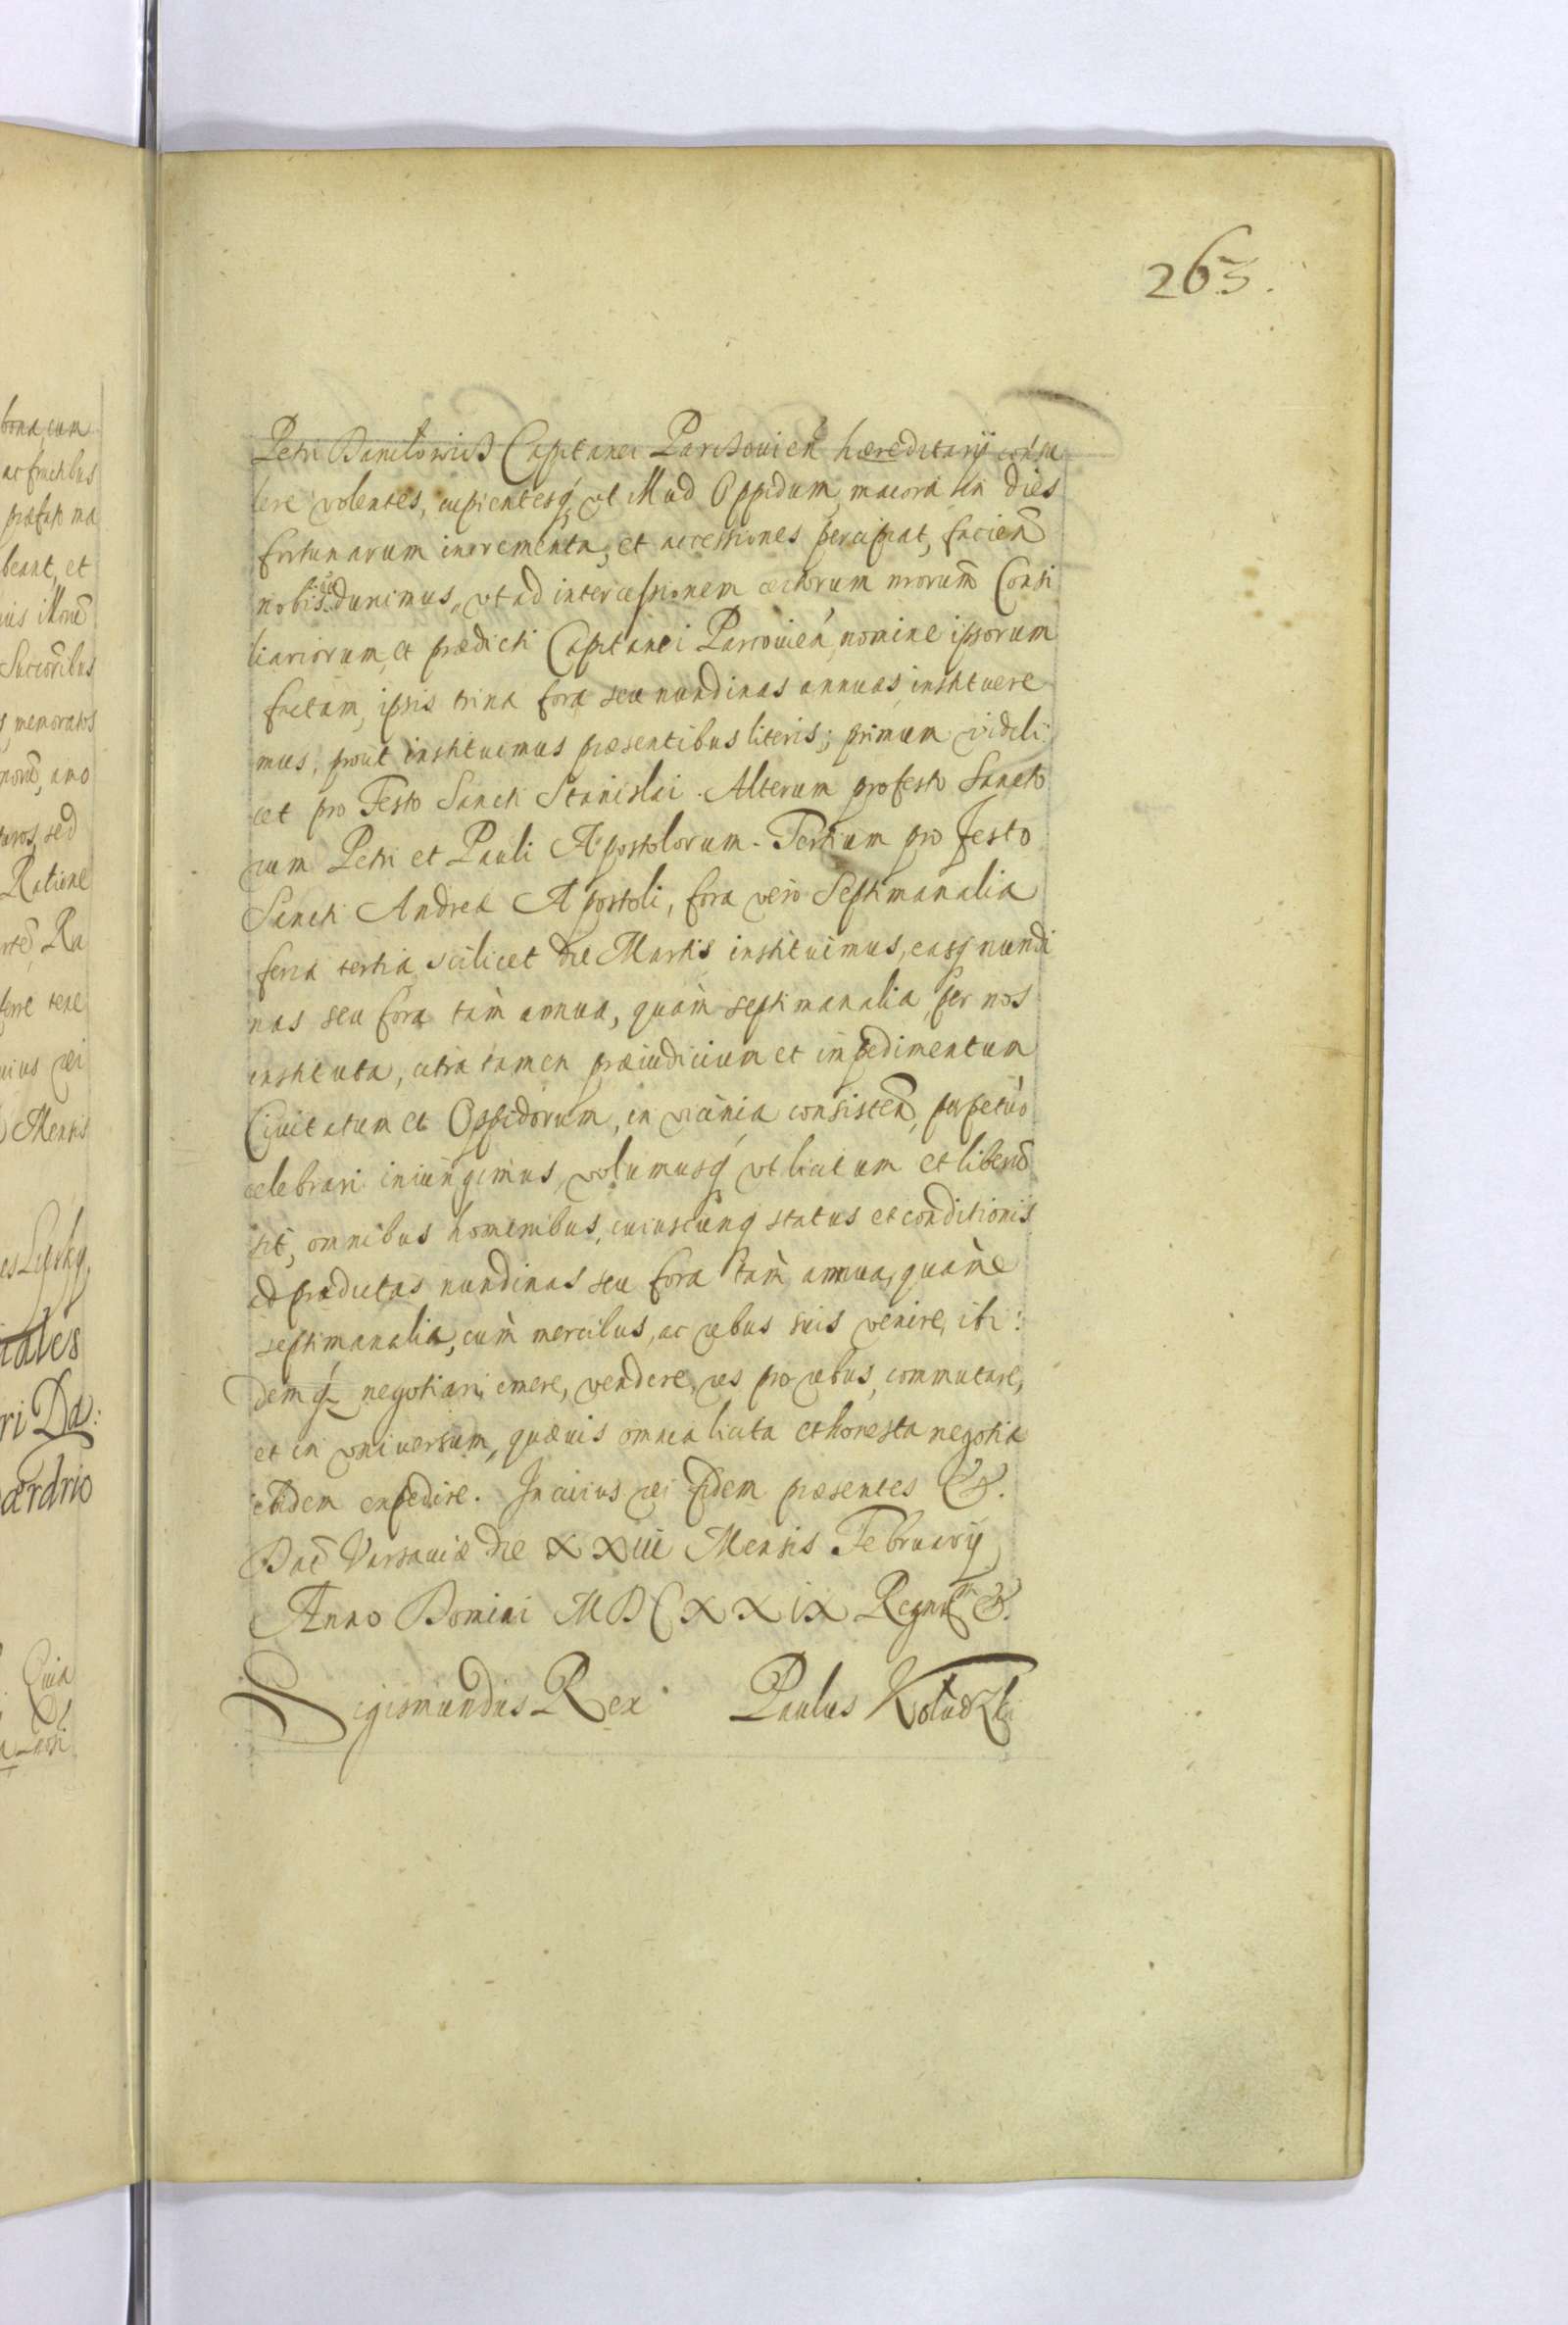 263.
Petri Daniłowicz Capitanei Parczouien̄ hæreditarij consu
lere volentes, cupientesq́, vt illud Oppidum, maiora in dies
fortunarum incrementa, et accessiones percipiat, facien̄
nobis duximus, vt ad intercessionem certorum nrorum Consi
liariorum, et prædicti Capitanei Parcouien̄, nomine ipsorum
factam, ipsis trina fora seu nundinas annuas, instituere
mus, prout instituimus præsentibus literis; primum videli
cet pro Festo Sancti Stanislai. Alterum pro festo Sancto
rum Petri et Pauli Apostolorum. Tertium pro festo
Sancti Andreæ Apostoli, fora vero Septimanalia
feria tertia, scilicet die Martis instituimus, easq́ nundi
nas seu fora tàm annua, quàm septimanalia, per nos
instituta, citra tamen præiudicium et impedimentum
Ciuitatum et Oppidorum, in vicinia consisten̄, perpetuò
celebrari iniungimus, volumusq́ vt licitum et liberū
sit, omnibus hominibus, cuiuscunq́ status et conditionis
ad prædictas nundinas seu fora tàm annua, quàm
septimanalia, cùm mercibus, ac rebus suis venire, ibi:
demq́ negotiari, emere, vendere, res pro rebus, commutare,
et in vniuersum, quæuis omnia licita et honesta negotia
ibidem expedire. In cuius rei fidem præsentes &.
Dat̄ Varsauiæ die XXIII Mensis February
Anno Domini MDCXXIX Regnorū &.
Sigismundus Rex Paulus Kołudzki
bona, cum
ac fructibus
præfato ma
beant, et
Successoribus
memoratos
sed
Ratione
Ra
tene
rei
Mensis
ri Da: